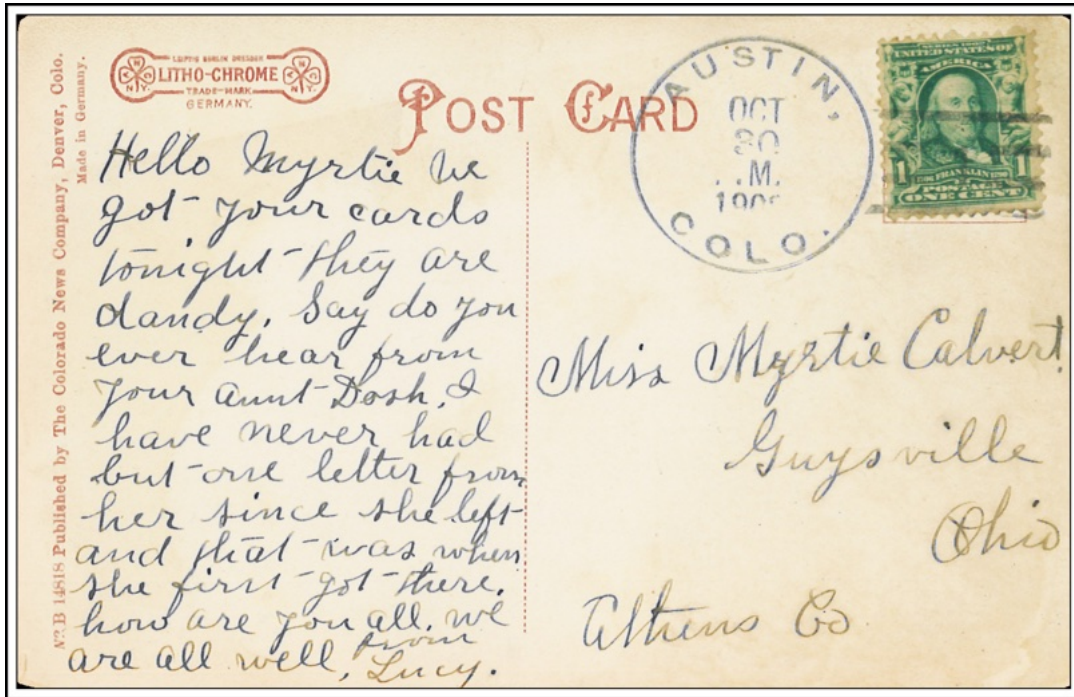 No. B 14818 Published by The Colorado News Company, Denver, Colo.
Made in Germany.
LEIPZIG BERLIN DRESDEN
LITHO-CHROME
TRADE-MARK
GERMANY.
N N
N.Y. N.Y.
POST CARD
AUSTIN,
OCT
30
M.
COLO.
SERIES 1902
UNITED STATES OF
AMERICA
1 1
FRANKLIN
POSTAGE
ONE CENT
Hello Myrtie We
got your cards
tonight they are
dandy. Say do you
ever hear from
your aunt Dosh. I
have never had
but one letter from
her since she left
and that was when
she first got there.
how are you all. we
are all well, from
Lucy.
Miss Myrtie Calvert
Guysville
Ohio
Athens Co